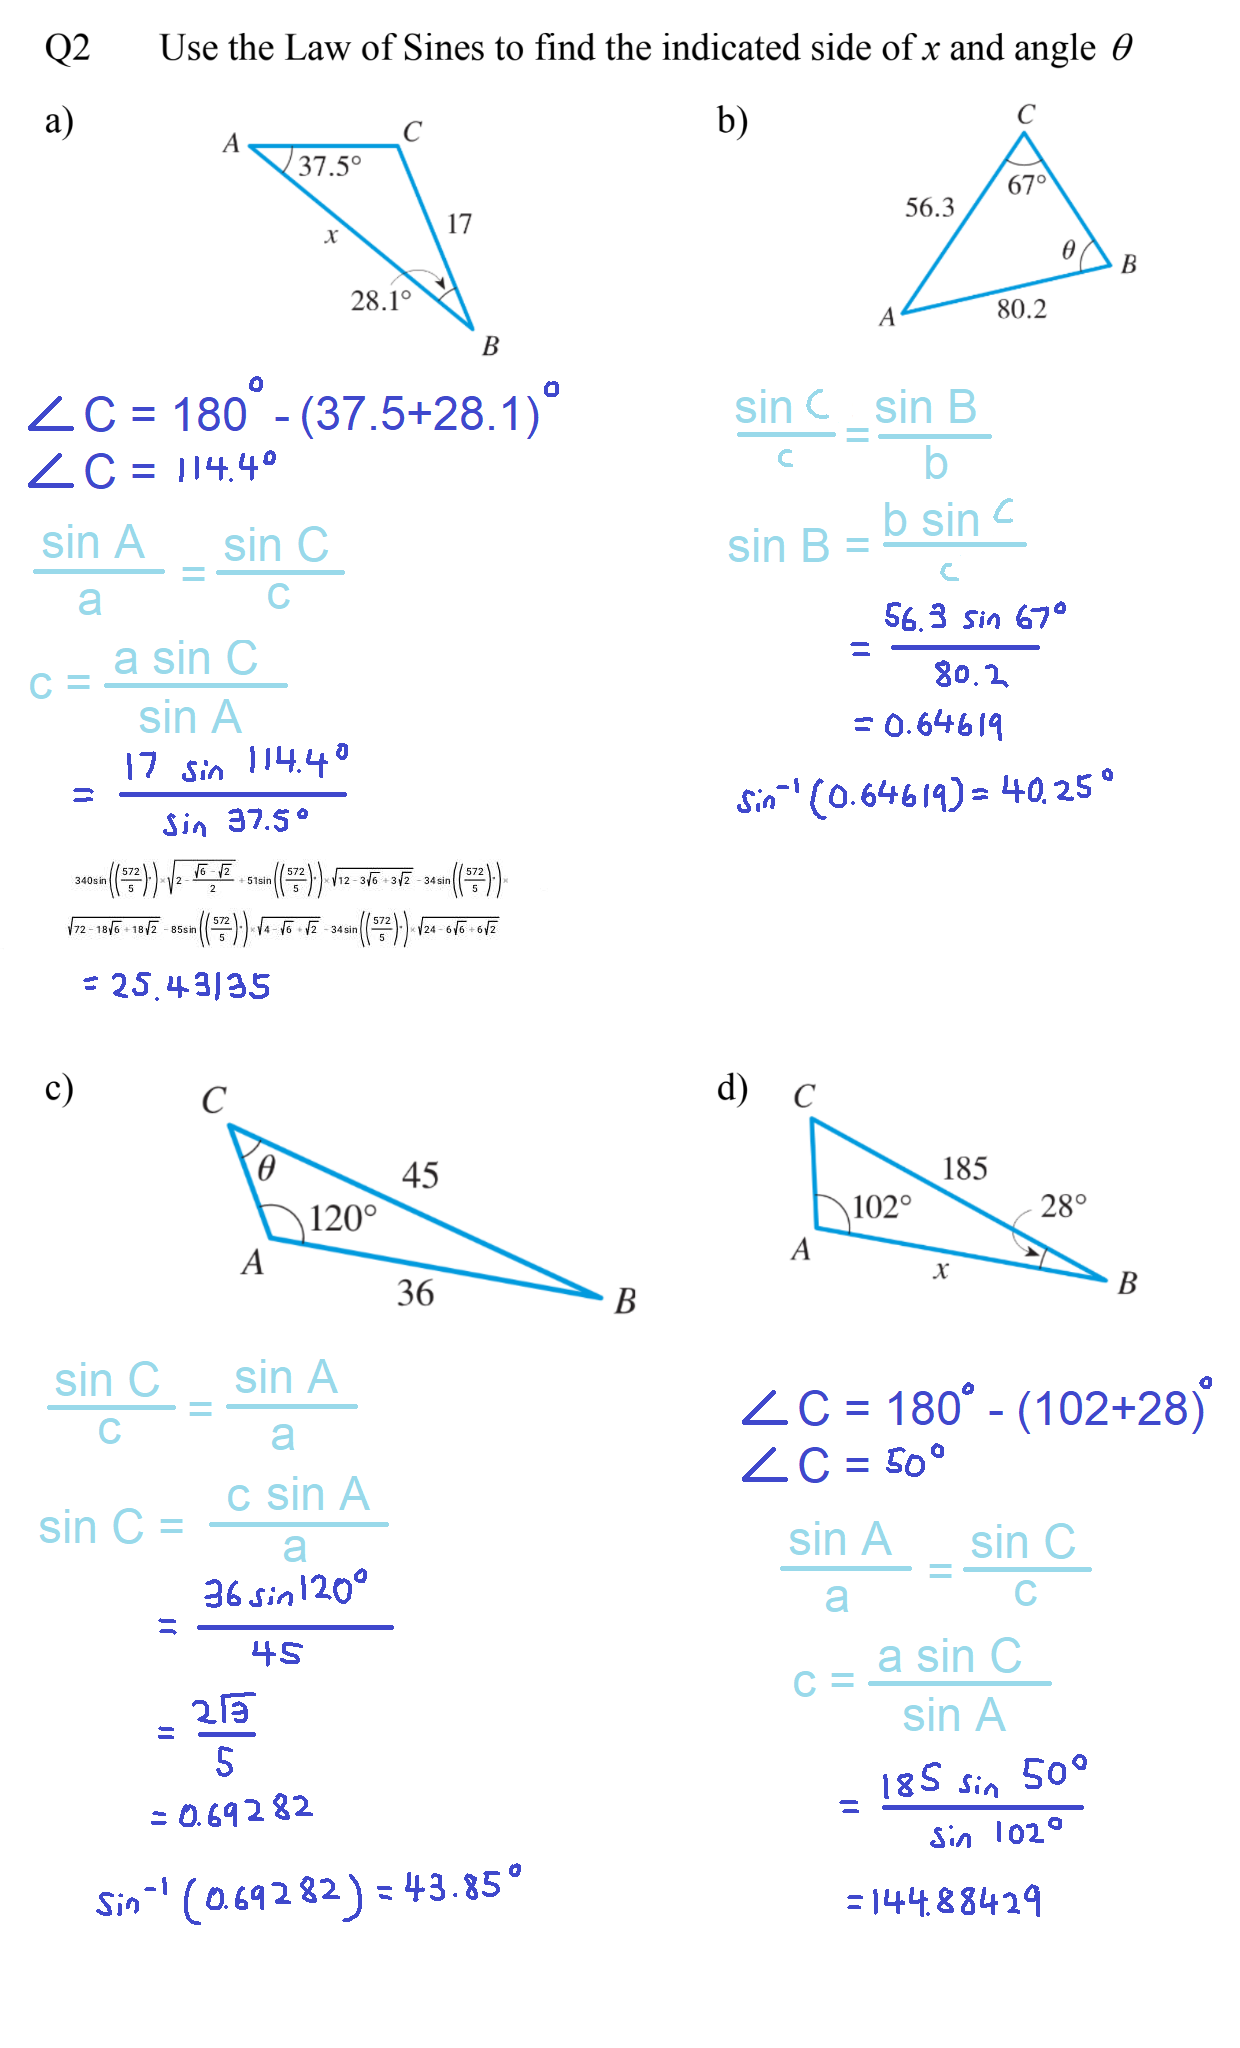 Q2 Use the Law of Sines to find the indicated side of x and angle θ
a)
A
C
37.5°
17
x
28.1°
B
∠C = 180° - (37.5+28.1)°
∠C = 114.4°
sin A / a = sin C / c
c = a sin C / sin A
= 17 sin 114.4° / sin 37.5°
340sin((572/5)°) × √(2 - (√6 - √2)/2) + 51sin((572/5)°) × √(12 - 3√6 + 3√2) - 34sin((572/5)°) ×
√(72 - 18√6 + 18√2) - 85sin((572/5)°) × √(4 - √6 + √2) - 34sin((572/5)°) × √(24 - 6√6 + 6√2)
= 25.43135
b)
C
67°
56.3
θ
B
A
80.2
sin C / c = sin B / b
sin B = b sin C / c
= 56.3 sin 67° / 80.2
= 0.64619
sin⁻¹(0.64619) = 40.25°
c)
C
θ
45
120°
A
36
B
sin C / c = sin A / a
sin C = c sin A / a
= 36 sin 120° / 45
= 2√3 / 5
= 0.69282
sin⁻¹(0.69282) = 43.85°
d)
C
185
102°
28°
A
x
B
∠C = 180° - (102+28)°
∠C = 50°
sin A / a = sin C / c
c = a sin C / sin A
= 185 sin 50° / sin 102°
= 144.88429